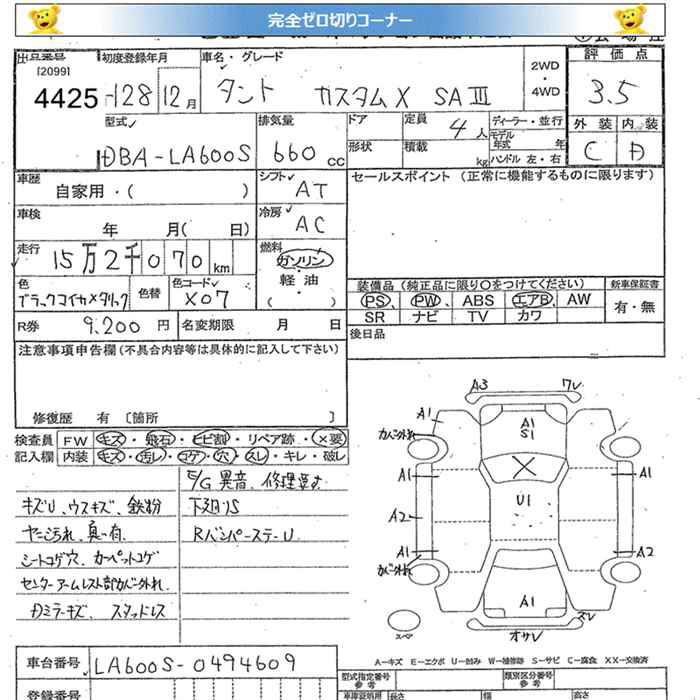 完全ゼロ切りコーナー
出品番号 初度登録年月 車名・グレード 評価点
[2099]
4425 -128 12月 タント カスタムX SAⅢ 2WD・4WD 3.5
型式 排気量 ドア 定員 4人 ディーラー・並行 外装 内装
モデル年式 年
DBA-LA600S 660cc 形状 積載 kg ハンドル 左・右 C D
車歴 シフト セールスポイント (正常に機能するものに限ります)
自家用・( ) AT
車検 冷房
年 月( 日) AC
走行 燃料
15万2千070km ガソリン・軽油・( )
装備品 (純正品に限り○をつけてください) 新車保証書
色 色替 色コード PS PW ABS エアB AW 有・無
ブラックマイカメタリック X07 SR ナビ TV カワ
R券 9,200円 名変期限 月 日 後日品
注意事項申告欄(不具合内容等は具体的に記入して下さい)
修復歴 有 〔箇所 〕
検査員 FW キズ・飛石・ヒビ割・リペア跡・×要
記入欄 内装 キズ・汚レ・コゲ・穴・スレ・キレ・破レ
E/G異音、修理要す
キズU、ウスキズ、鉄粉 下廻りS
ヤニ汚れ、臭い有 RバンパーステーU
シートコゲ穴、カーペットコゲ
センターアームレスト部カバー外れ
Dミラーキズ、スタッドレス
A3 ワレ
A1 A1 S1
カバー外れ
A1 A1
U1
A2
A1 A2
カバー外れ
A1 スレ
スペア オサレ
A-キズ E-エクボ U-凹み W-補修跡 S-サビ C-腐食 XX-交換済
車台番号 LA600S-0494609 型式指定番号 参考 類別区分番号 参考
登録番号 車庫証明用 長さ 幅 高さ